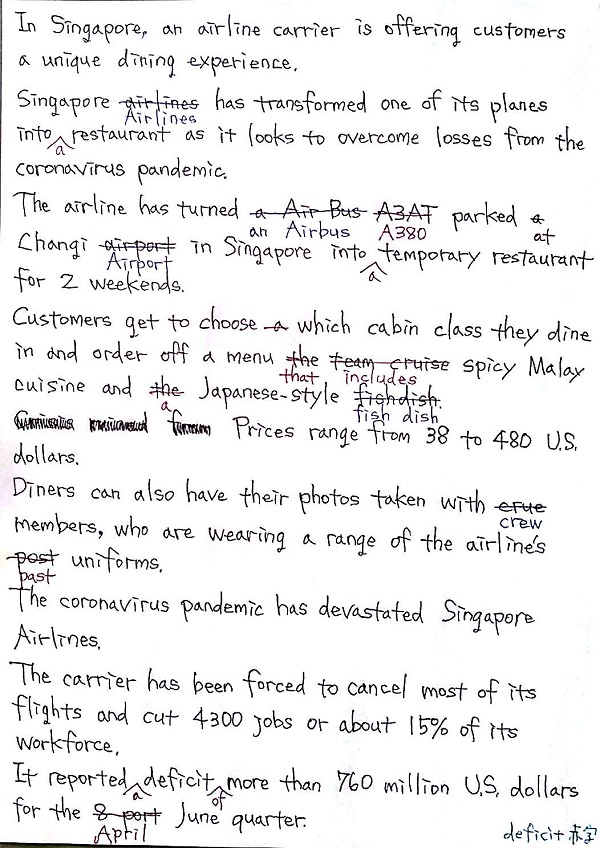 In Singapore, an airline carrier is offering customers
a unique dining experience.
Singapore airlines has transformed one of its planes
Airlines
into restaurant as it looks to overcome losses from the
a
coronavirus pandemic.
The airline has turned a Air Bus A3AT parked a
an Airbus A380 at
Changi airport in Singapore into temporary restaurant
Airport a
for 2 weekends.
Customers get to choose a which cabin class they dine
in and order off a menu the team cruise spicy Malay
that includes
cuisine and the Japanese-style fighdish.
a fish dish
Prices range from 38 to 480 U.S.
dollars.
Diners can also have their photos taken with crue
crew
members, who are wearing a range of the airline's
post uniforms.
past
The coronavirus pandemic has devastated Singapore
Airlines.
The carrier has been forced to cancel most of its
flights and cut 4300 jobs or about 15% of its
workforce.
It reported deficit more than 760 million U.S. dollars
a of
for the 8 port June quarter.
April
deficit 赤字